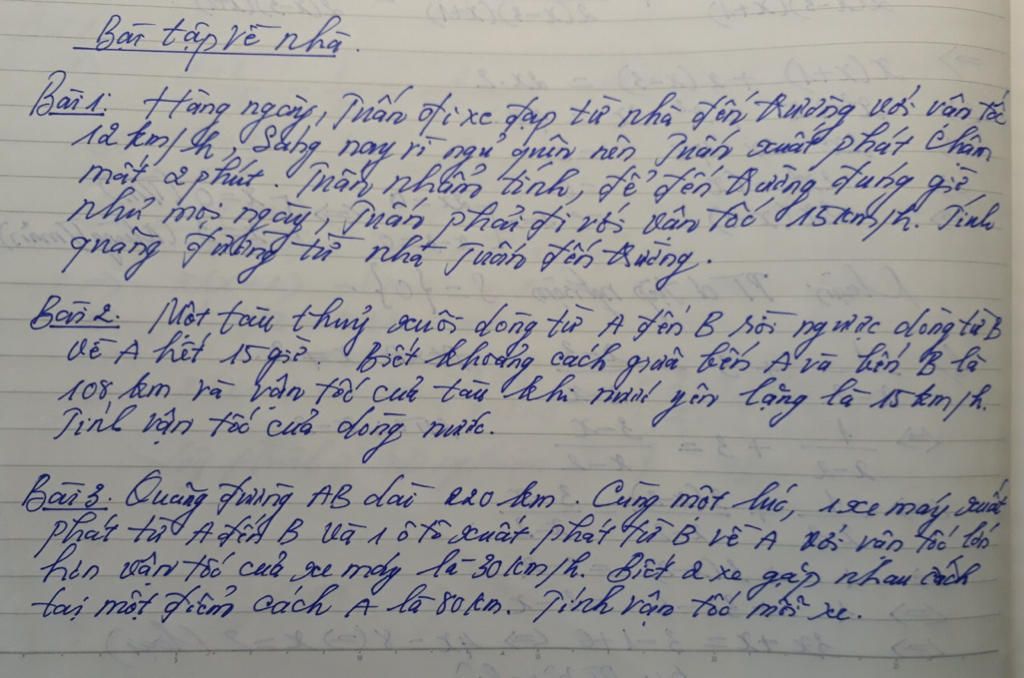 Bài tập về nhà.
Bài 1: Hàng ngày, Tuấn đi xe đạp từ nhà đến trường với vân tốc
12 km/h, Sáng nay vì ngủ quên nên Tuấn xuất phát chậm
mất 2 phút. Tuấn nhẩm tính, để đến trường đúng giờ
như mọi ngày, Tuấn phải đi với vân tốc 15 km/h. Tính
quãng đường từ nhà Tuấn đến trường.
Bài 2. Một tàu thuỷ xuôi dòng từ A đến B rồi ngược dòng từ B
về A hết 15 giờ. Biết khoảng cách giữa bến A và bến B là
108 km và vận tốc của tàu khi nước yên lặng là 15 km/h.
Tính vận tốc của dòng nước.
Bài 3. Quãng đường AB dài 220 km. Cùng một lúc, 1 xe máy xuất
phát từ A đến B và 1 ô tô xuất phát từ B về A với vân tốc lớn
hơn vận tốc của xe máy là 30 km/h. Biết 2 xe gặp nhau cách
tại một điểm cách A là 80 km. Tính vận tốc mỗi xe.